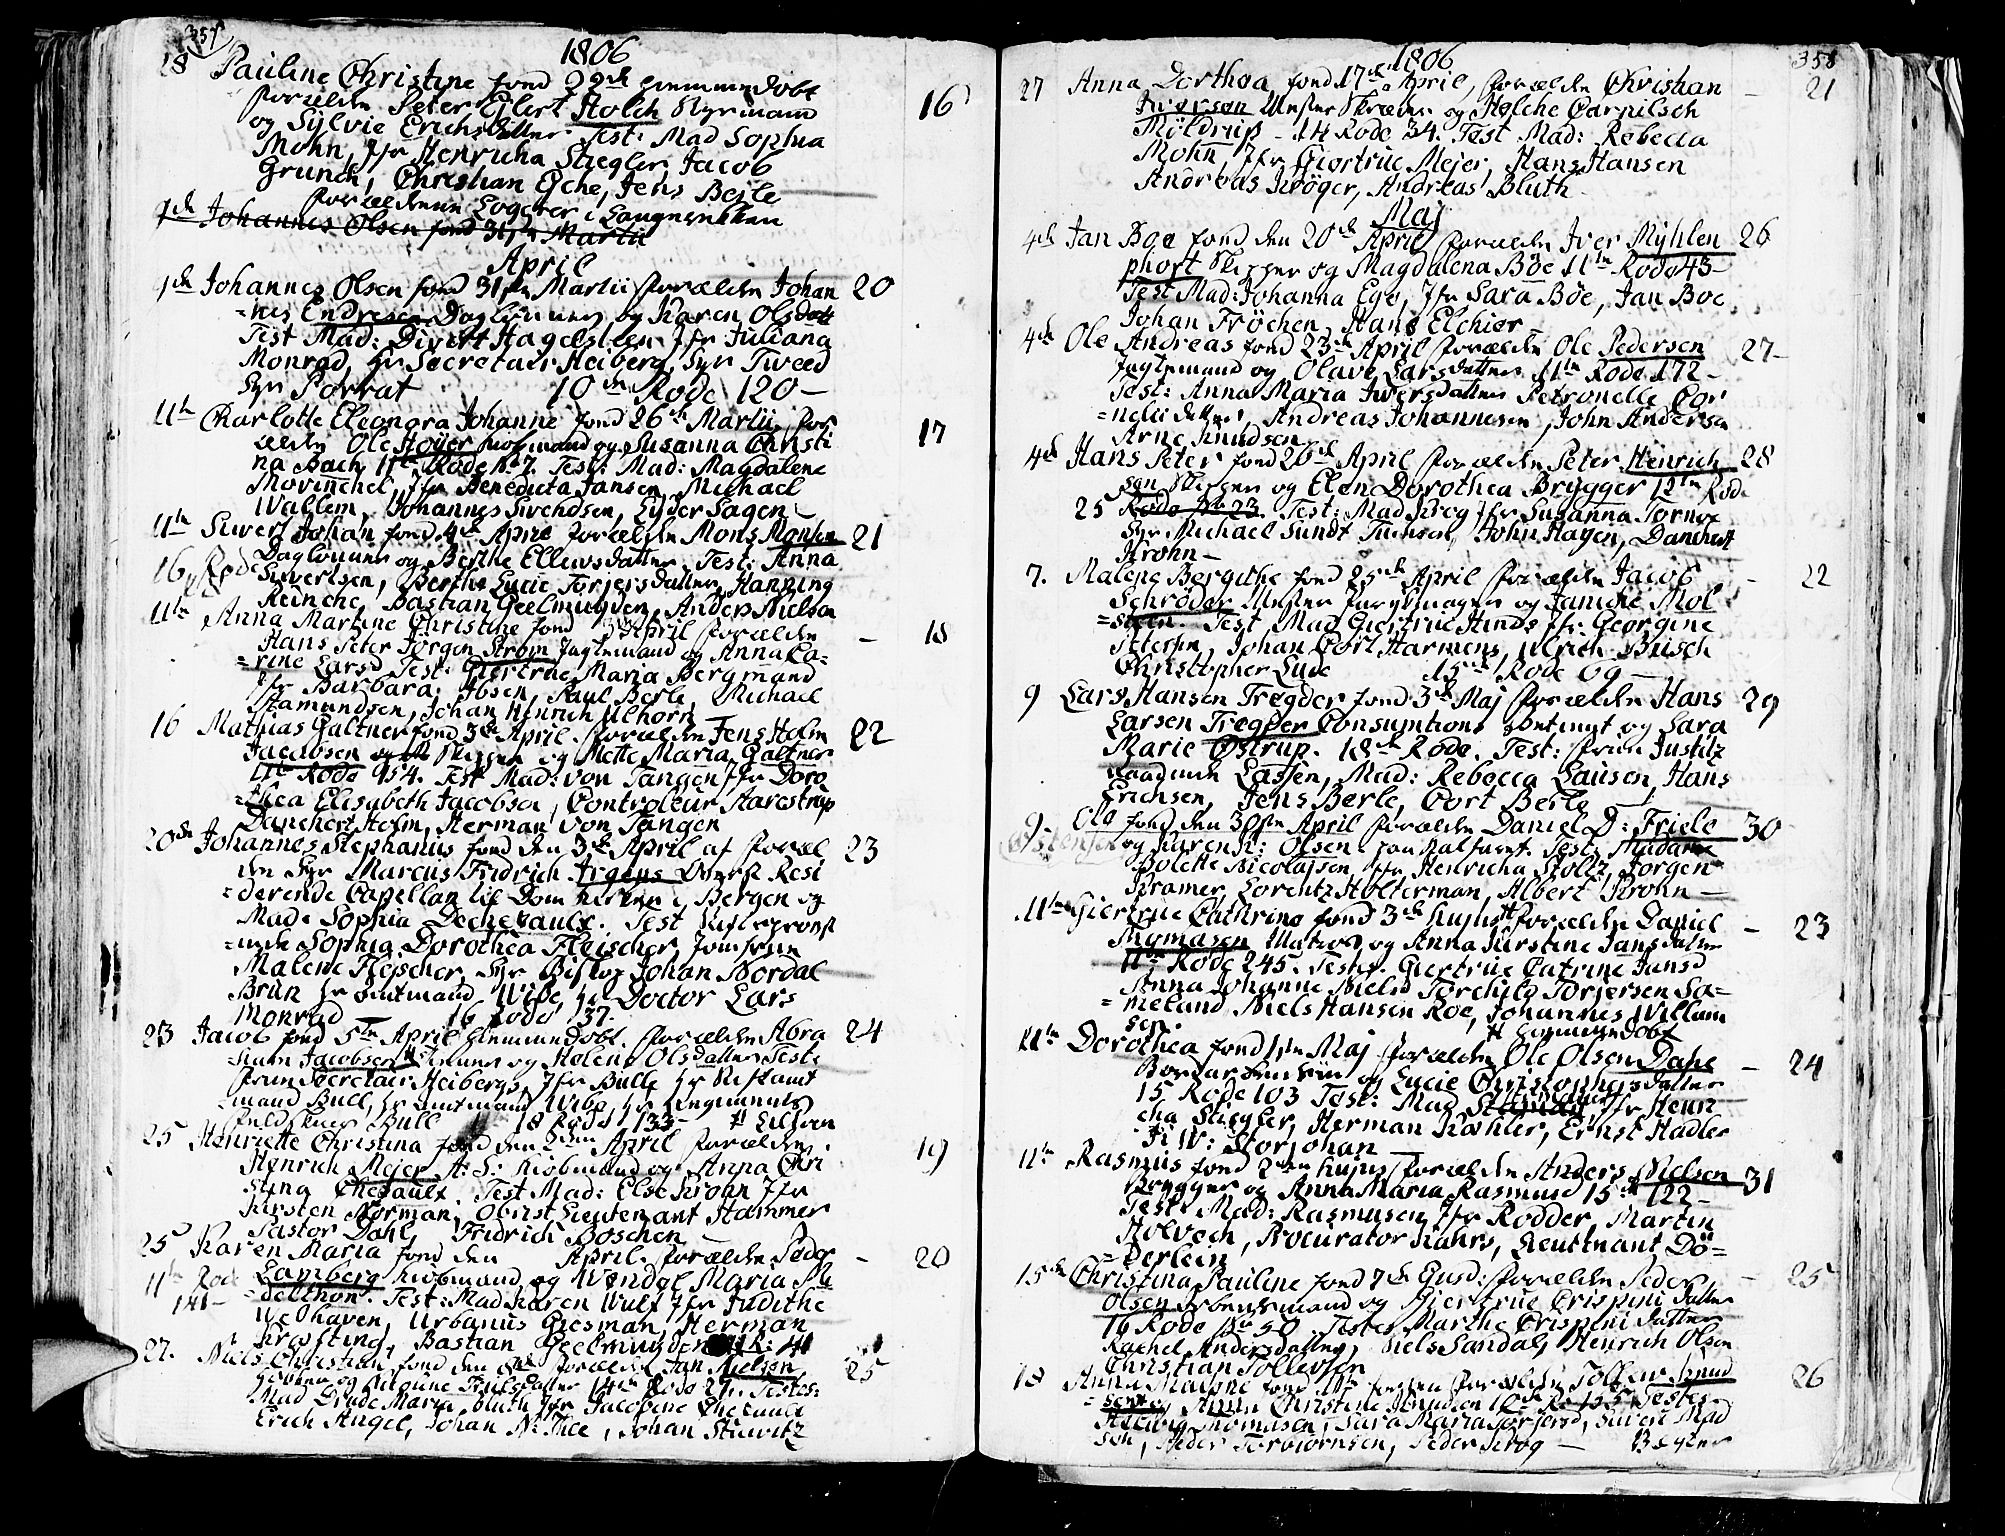 357
1806
28 Pauline Christine fød 22de hiemmedøbt
Forældre Peter Eilert Holck Styrmand 16
og Sylvie Erichsdatter Test: Mad Sophia
Mohn, Jfr Henricha Stiegler, Jacob
Grunch, Christian Eche, Jens Beyle
Forældrene Logerer i Sougnsgaden
1de Johannes Olsen fød 31te Martii
April
1de Johannes Olsen fød 31te Martii Forældre Johan 20
=nes Endresen Daglønner og Karen Olsdatt
Test Mad: Divert Hagelsteen Jfr Juliana
Monrad, Hr Secretair Heiberg, Hr Tweed
Hr Forrat 10de Rode 120-
11te Charlotte Eleonora Johanne fød 26de Martii, For
ældre Ole Høyer og Susanna Christi 17
na Bach, 11te Rode No 7. Test: Mad: Magdalene
Jfr Benedicta Jansen, Michael
Wallem, Johannes Svendsen, Lyder Sagen
11te Siwert Johan fød 4de April Forældre Mons Monsen 21
Daglønner og Berthe Ellewsdatter. Test: Anna
16 Rode Siwertsen, Berthe Lucie Torjersdatter, Hanning
Reinche, Bastian Geelmuyden, Anders Nielsen
11te Anna Martine Christine fød April Forældre - 18
Hans Peter Jørgen Strøm Jagtemand og Anna Ca=
=rine Larsd Test: Giertrue Maria Bergmand
Jfr Barbara Ibsen, Paul Berle, Michael
Amundsen, Johan Hinrich Ulhorn
16 Mathias Galtner fød 3de April. Forældre Jens Holm 22
Jacobsen Skipper og Mette Maria Galtner
11te Rode 954. Test Mad: von Tangen Jfr Doro
=thea Elisabeth Jacobsen, Controleur Aarestrup
Danchert Holm, Herman von Tangen
20de Johannes Stephanus fød den 3de April af Foræl 23
dre Hr Marcus Fridrich Irgens Resi
=derende Capellan til Dom Kirken i Bergen og
Mad: Sophia Dechezaulx. Test Stiftsprovst
=inde Sophia Dorothea Fleischer, Jomfrue
Malene Flejscher, Hr Bisk Johan Nordal
Brun Hr Amtmand Wibe, Hr Doctor Lars
Monrad 16 Rode 137.
23 Jacob fød 5te April hiemmedøbt. Forældre Abra 24
=ham Jacobsen og Helene Olsdatter Test:
Frue Secretair Heibergs, Jfr Bulle Hr Stiftamt
mand Bull, Hr Amtmand Wibe, Hr Regiments
Feldskier Bull 18 Rode 133-
25 Henriette Christina fød den April Forældre
Henrich Mejer A: S: Kiøbmand og Anna Chri 19
stina Chezaulx. Test Mad: Else Krohn Jfr
Kirsten Norman, Obrist Lieutenant Hammer
Pastor Dahl, Fridrich Boschen
25 Karen Maria fød den April. Forældre Peder - 20
11te Rode Lamberg Kiøbmand og Wendel Maria
141- =delthon. Test: Mad Karen Wulf Jfr Judithe
Welhaven, Urbanus Giesman, Herman
Krafting, Bastian Geelmuyden
27. Niels Christian fød den Forældre Jan Nielsen 25
og 14de Rode 27. Testes:
Mad Drude Maria Bluth Jfr Jacobine Chezaulx
Erich Angel, Johan N: Thee, Johan Stuwitz
1806 358
27 Anna Dorthea, fød 17de April, Forældre Christian - 21
Iversen Mester Skræder og Helche Carnilsch
Myldrup - 14 Rode 34. Test Mad: Rebecca
Mohn, Jfr Giertrue Mejer, Hans Hansen
Andreas Krøger, Andreas Bluth
Maj
4de Jan Bøe fød den 20de April Forældre Iver Myhlen 26
phort Skipper og Magdalena Bøe 11te Rode 43-
Test Mad: Johanna Ege, Jfr Sara Bøe, Jan Boe
Johan Frøchen, Hans Elchier
4de Ole Andreas fød 23de April Forældre Ole Pedersen 27-
Jagtemand og Olave Larsdatter 11te Rode 172-
Test: Anna Maria Iversdatter Petronelle Cor
=nelii datter, Andreas Johannesen, John Andersen
Arne Knudsen
4de Hans Peter fød 26de April Forældre Peter Henrich 28
sen Skipper og Elen Dorothea Brygger 12te Rode
25 Rode No 23. Test: Mad Krog Jfr Susanna Forner
Hr Michael Sundt John Hagen, Danchert
Krohn-
7. Malene Bergithe fød 25de April Forældre Jacob - 22
Schrøder Mester og Janiche Mol
=stein. Test Mad Giertrue Hinds Jfr: Georgine
Petersen, Johan Cort Harmens, Ulrich Büsch
Christopher Lude 15de Rode 69-
9 Lars Hansen Tregder fød 3de Maj Forældre Hans 29
Larsen Tregder Consumtions og Sara
Marie Østrup. 18de Rode. Test: Frue Justitz
raadinde Lassen, Mad: Rebecca Lausen, Hans
Erichsen, Jens Berle, Cort Berle
9- Ole fød den 30te April Forældre Daniel D: Friele 30
og Karen K: Olsen Test: Madame
Bolethe Nicolajsen, Jfr Henricha Stoltz, Jørgen
Kramer, Lorentz Holterman, Albert Krohn-
11te Giertrue Cathrine fød 3de hujus # Forældre Daniel - 23
Thomasen Matros og Anna Kirstine Jansdatter
11te Rode 245. Testes. Giertrue Catrine Jansd
Anna Johanne Nielsd Torchild Torjersen Sa-
=meland Niels Hansen Roe, Johannes Willum
sen. # hiemmedøbt
11te Dorothea fød 1te Maj Forældre Ole Olsen Dahl - 24
og Lucie Christophersdatter
15 Rode 103 Test: Mad Jfr Henri
cha Stiegler, Herman Kahler, Ernst Hadler
F: W: Storjohan
11te Rasmus fød 2den hujus Forældre Anders Nielsen 31
Brygger og Anna Maria Rasmusd 15de 122-
Test: Mad: Rasmusen, Jfr Rodder, Martin
Holvech, Procurator Kahrs, Lieutnant Dö=
=derlein
15de Christina Pauline fød 7de Forældre Peder - 25
Olsen Arbeidsmand og Giertrue Crispini datter
16 Rode No 50. Testes Marthe Crispini datter
Rachel Andersdatter, Niels Sandal, Henrich Olsen
Christian Tollevsen
18 Anna Malene fød 11te Forældre Tollew Knud 26
=sen og Anna Christine Knudsen 10de R: 155 Testes
Thomasen, Sara Maria Torjersd, Siwert Mad
sen, Peder Torbiørnsen, Peder Krog -